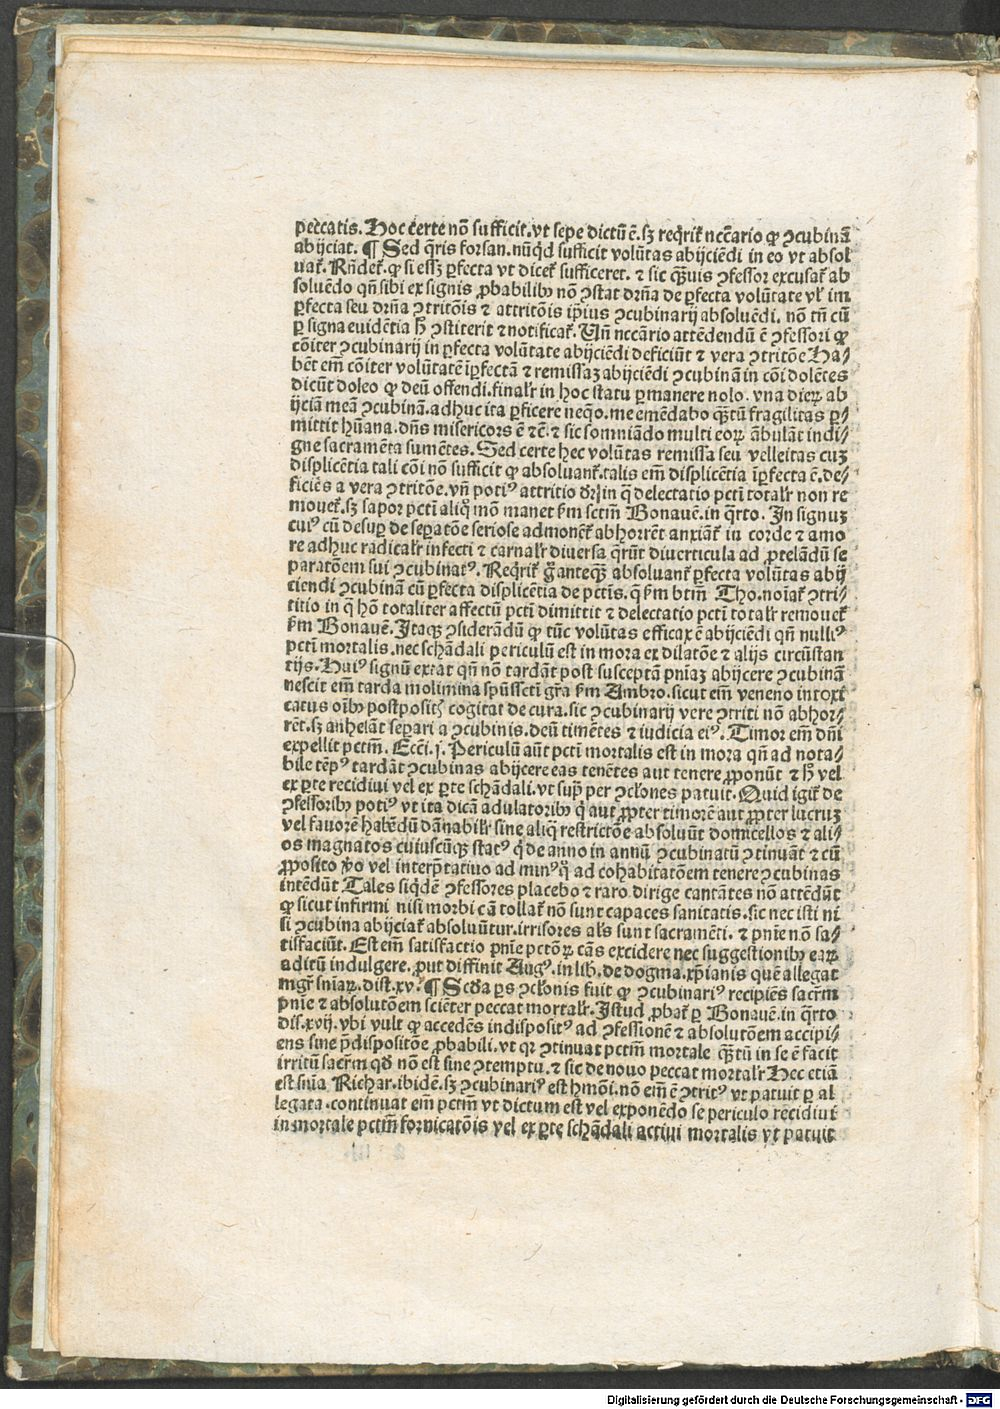 peccatis. Hoc certe nō sufficit. vt sepe dictū ē. sꝫ reqͥrit᷑ nccͣrio ꝙ ↄcubinā
abijciat. ¶ Sed qͥris forsan. nūqͥd sufficit volūtas abijciēdi in eo vt absol
uat᷑. Rn̄det᷑. ꝙ si essꝫ ꝑfecta vt dicet᷑ sufficeret. ⁊ sic qͣꝫuis ↄfessor excusat᷑ ab
soluēdo qn̄ sibi ex signis ꝓbabilibꝰ nō ↄstat drn̄a de ꝑfecta volūtate vl᷑ im
ꝑfecta seu drn̄a ↄtritōis ⁊ attritōis ip̄ius ↄcubinarij absoluēdi. nō tn̄ cū
ꝑ signa euidētia hͦ ↄstiterit ⁊ notificat᷑. Vn̄ nccͣrio attēdendū ē ↄfessori ꝙ
cōiter ↄcubinarij in ꝑfecta volūtate abijciēdi deficiūt ⁊ vera ↄtritōe Ha⸗
bēt em̄ cōiter volūtatē īꝑfectā ⁊ remissaꝫ abijciēdi ↄcubinā in cōi dolētes
dicūt doleo ꝙ deū offendi. finalr̄ in hoc statu ꝑmanere nolo. vna dieꝝ ab
ijciā meā ↄcubinā. adhuc ita ꝑficere neqͦo. me emēdabo qͣꝫtū fragilitas ꝑ⸗
mittit hūana. dn̄s misericors ē ⁊ē. ⁊ sic somniādo multi eoꝝ ābulāt indi⸗
gne sacramēta sumētes. Sed certe hec volūtas remissa seu velleitas cuꝫ
displicētia tali cōi nō sufficit ꝙ absoluant᷑. talis em̄ displicētia īꝑfecta ē. de⸗
ficiēs a vera ↄtritōe. vn̄ potiꝰ attritio dr̄ in q̄ delectatio pctī totalr̄ non re
mouet᷑. sꝫ sapor pctī aliqͦ mō manet ẜm sctm̄ Bonauē. in qͣrto. In signuꝫ
cuiꝰ cū desuꝑ de seꝑatōe seriose admonēt᷑ abhorrēt anxiāt᷑ in corde ⁊ amo
re adhuc radicalr̄ infecti ⁊ carnalr̄ diuersa qͣrūt diuerticula ad ꝓtelādū se
paratōem sui ↄcubinatꝰ. Reqͥrit᷑ gͦ anteqͣꝫ absoluant᷑ ꝑfecta volūtas abij
ciendi ↄcubinā cū ꝑfecta displicētia de pctīs. q̄ ẜm btm̄ Tho. noīat᷑ ↄtri⸗
titio in q̄ hō totaliter affectū pctī dimittit ⁊ delectatio pctī totalr̄ remouet᷑
ẜm Bonauē. Itaqꝫ ↄsiderādū ꝙ tūc volūtas efficax ē abijciēdi qn̄ nulliꝰ
pctī mortalis. nec schādali periculū est in mora ex dilatōe ⁊ alijs circūstan
tijs. Huiꝰ signū extat qn̄ nō tardāt post susceptā pn̄iaꝫ abijcere ↄcubinā
nescit em̄ tarda molimina spūssctī gr̄a ẜm Ambro. sicut em̄ veneno intoxi
catus oībꝰ postpositꝭ cogitat de cura. sic ↄcubinarij vere ↄtriti nō abhor⸗
rēt. sꝫ anhelāt separi a ↄcubinis. deū timētes ⁊ iudicia eiꝰ. Timor em̄ dn̄i
expellit pctm̄. Ecci. j. Periculū aūt pctī mortalis est in mora qn̄ ad nota⸗
bile tēpꝰ tardāt ↄcubinas abijcere eas tenētes aut tenere ꝓponūt ⁊ hͦ vel
ex ꝑte recidiui vel ex ꝑte schādali. vt supͣ per ↄclones patuit. Quid igit᷑ de
ↄfessoribꝰ potiꝰ vt ita dicā adulatoribꝰ qͥ aut ꝓpter timorē aut ꝓpter lucruꝫ
vel fauorē habēdū dānabilr̄ sine aliqͣ restrictōe absoluūt domicellos ⁊ ali⸗
os magnatos cuiuscūqꝫ statꝰ qͥ de anno in annū ↄcubinatū ↄtinuāt ⁊ cū
ꝓposito v̄o vel interp̄tatiuo ad minꝰ qͦ ad cohabitatōem tenere ↄcubinas
intēdūt Tales siqͥdē ↄfessores placebo ⁊ raro dirige cantātes nō attēdūt
ꝙ sicut infirmi nisi morbi cā tollat᷑ nō sunt capaces sanitatis. sic nec isti ni
si ↄcubina abijciat᷑ absoluūtur. irrisores als̄ sunt sacramēti. ⁊ pn̄ie nō sa⸗
tisfaciūt. Est em̄ satisfactio pn̄ie pctōꝝ cās excidere nec suggestionibꝰ eaꝝ
aditū indulgere. ꝓut diffinit Augꝰ. in lib. de dogma. xp̄ianis quē allegat
mgr̄ sniaꝝ. dist. xv. ¶ Scdͣa ꝑs ↄclonis fuit ꝙ ↄcubinariꝰ recipiēs sacrm̄
pn̄ie ⁊ absolutōem sciēter peccat mortalr̄. Istud ꝓbat᷑ ꝑ Bonauē. in qͣrto
dis. xvij. vbi vult ꝙ accedēs indispositꝰ ad ↄfessionē ⁊ absolutōem accipi⸗
ens sine p̄dispositōe ꝓbabili. vt qꝛ ↄtinuat pctm̄ mortale qͣꝫtū in se ē facit
irritū sacrm̄ qd̄ nō est sine ↄtemptu. ⁊ sic de nouo peccat mortalr̄ Hec etiā
est sn̄ia Richar. ibidē. sꝫ ↄcubinariꝰ est hmōi. nō em̄ ē ↄtritꝰ vt patuit ꝑ al
legata. continuat em̄ pctm̄ vt dictum est vel exponēdo se periculo recidiui
in mortale pctm̄ fornicatōis vel ex ꝑte schādali actiui mortalis vt patuit
Digitalisierung gefördert durch die Deutsche Forschungsgemeinschaft - DFG